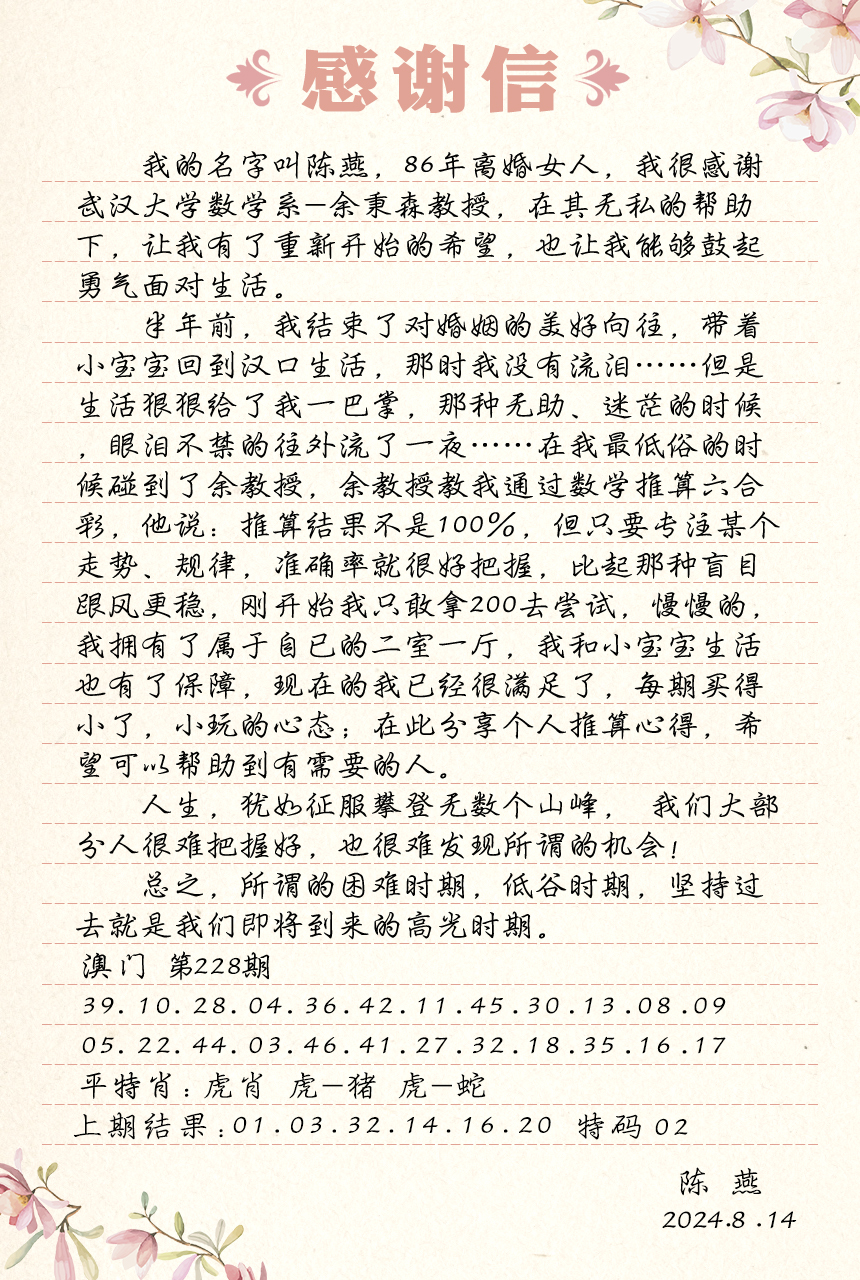 感谢信
我的名字叫陈燕，86年离婚女人，我很感谢
武汉大学数学系—余秉森教授，在其无私的帮助
下，让我有了重新开始的希望，也让我能够鼓起
勇气面对生活。
半年前，我结束了对婚姻的美好向往，带着
小宝宝回到汉口生活，那时我没有流泪……但是
生活狠狠给了我一巴掌，那种无助、迷茫的时候
，眼泪不禁的往外流了一夜……在我最低俗的时
候碰到了余教授，余教授教我通过数学推算六合
彩，他说：推算结果不是100%，但只要专注某个
走势、规律，准确率就很好把握，比起那种盲目
跟风更稳，刚开始我只敢拿200去尝试，慢慢的，
我拥有了属于自已的二室一厅，我和小宝宝生活
也有了保障，现在的我已经很满足了，每期买得
小了，小玩的心态；在此分享个人推算心得，希
望可以帮助到有需要的人。
人生，犹如征服攀登无数个山峰， 我们大部
分人很难把握好，也很难发现所谓的机会！
总之，所谓的困难时期，低谷时期，坚持过
去就是我们即将到来的高光时期。
澳门 第228期
39.10.28.04.36.42.11.45.30.13.08.09
05.22.44.03.46.41.27.32.18.35.16.17
平特肖：虎肖 虎—猪 虎—蛇
上期结果：01.03.32.14.16.20 特码 02
陈 燕
2024.8.14